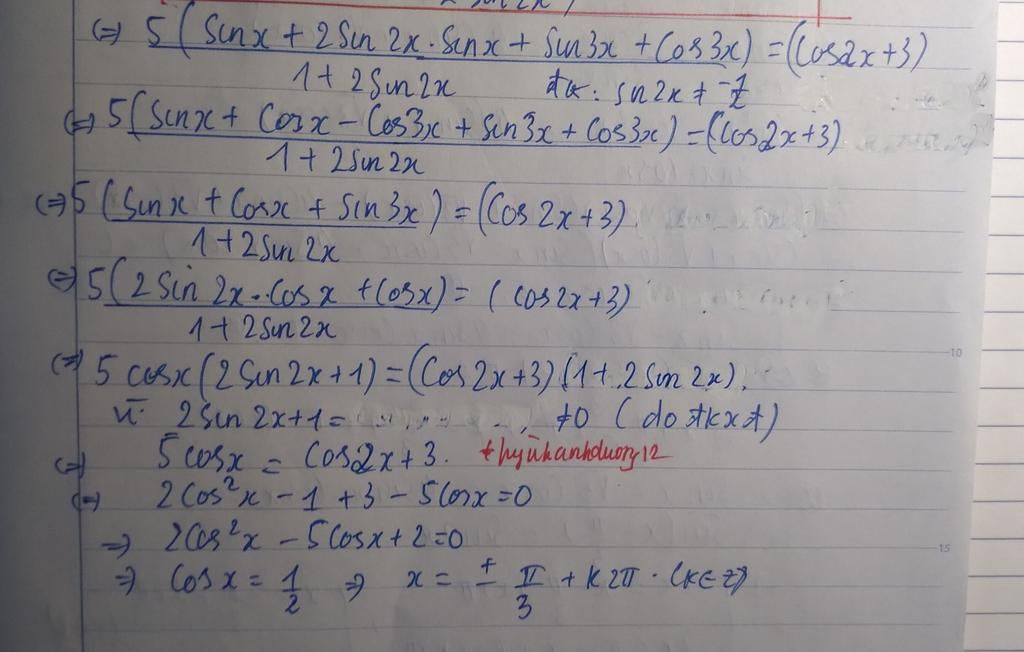 ⇔ 5 (Sinx + 2Sin 2x.Sinx + Sin3x + Cos3x) = (Cos2x+3)
1 + 2Sin2x đk: sin2x ≠ -1/2
⇔ 5(Sinx + Cosx - Cos3x + Sin3x + Cos3x) = (Cos2x+3)
1 + 2Sin2x
⇔ 5 (Sinx + Cosx + Sin3x) = (Cos 2x+3)
1 + 2Sin2x
⇔ 5(2Sin 2x.Cosx + Cosx) = (Cos2x+3)
1 + 2Sin2x
⇔ 5 cosx(2Sin2x+1) = (Cos2x+3)(1+2Sin2x).
Vì 2Sin2x+1 ≠0 (do đkxđ)
⇔ 5cosx = Cos2x+3. thyükhanhduong12
⇔ 2Cos²x - 1 + 3 - 5Cosx = 0
⇒ 2Cos²x - 5Cosx + 2 = 0
⇒ Cosx = 1/2 ⇒ x = ± π/3 + k2π. (k∈Z)
10
15